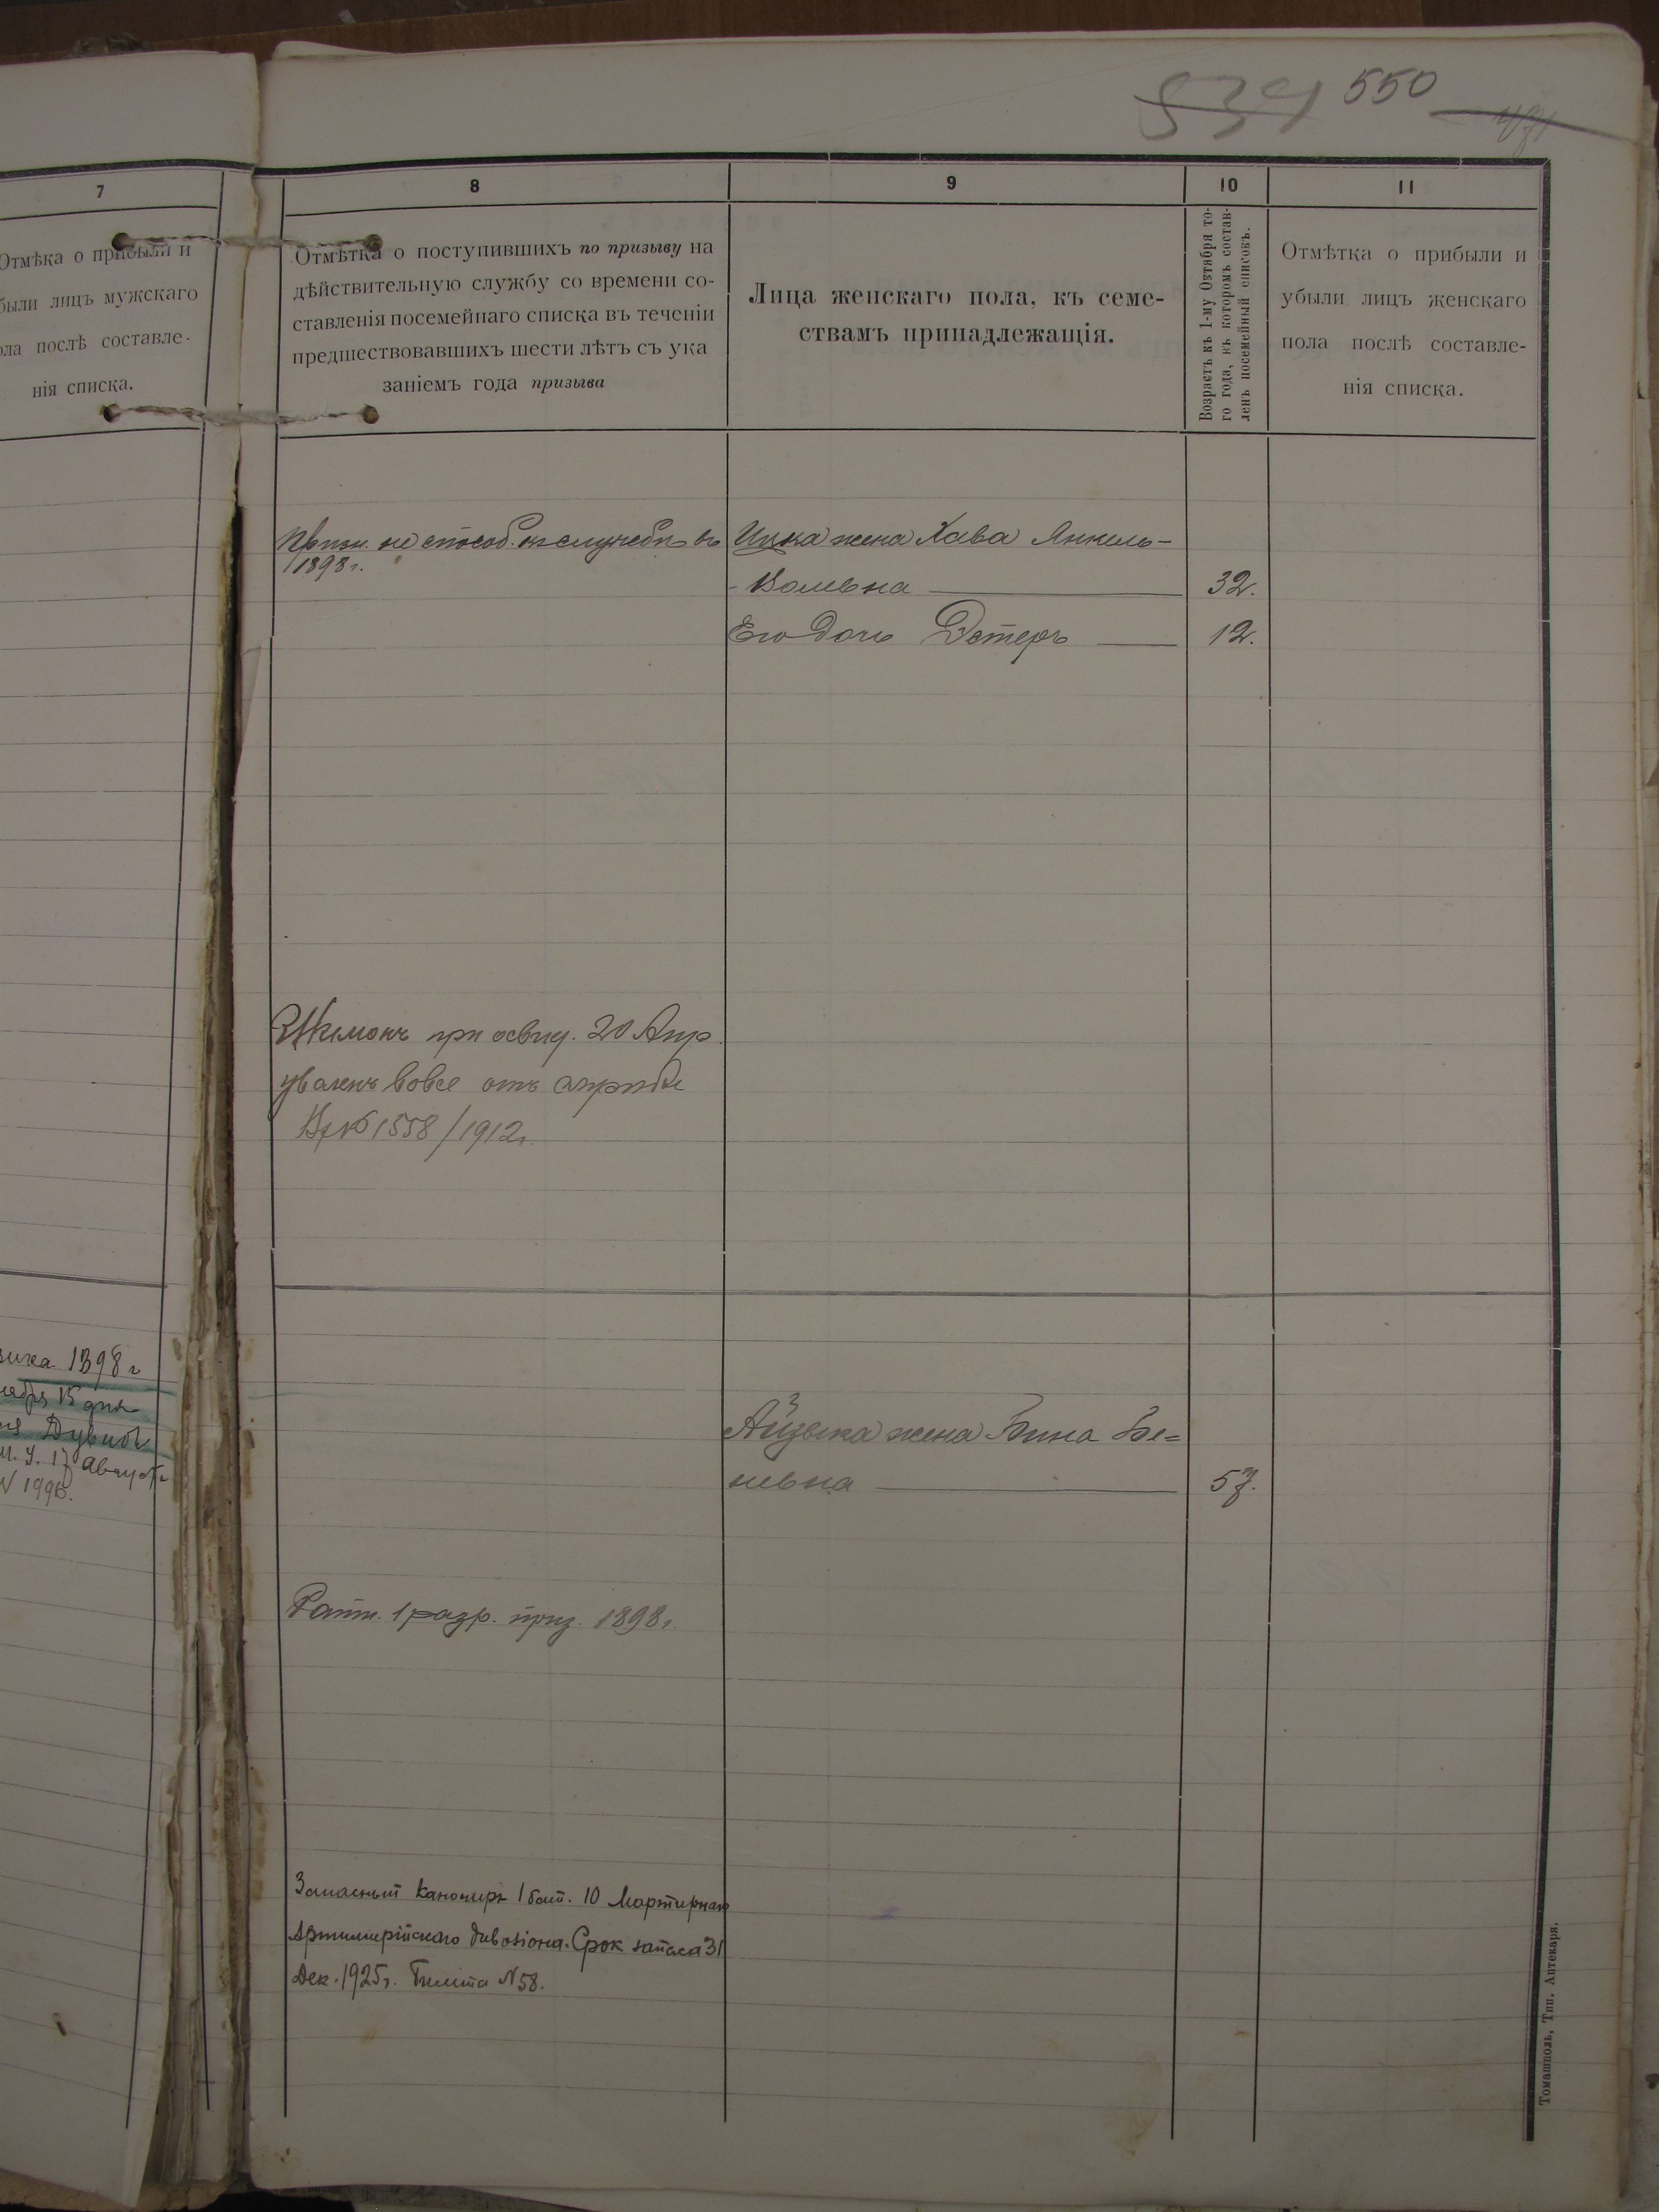 534 550
7
Отмѣка о прибыли и
были лицъ мужскаго
ола послѣ составле-
нія списка.
8
Отмѣтка о поступившихъ по призыву на
дѣйствительную службу со времени со-
ставленія посемейнаго списка въ теченіи
предшествовавшихъ шести лѣтъ съ ука
заніемъ года призыва
9
Лица женскаго пола, къ семе-
ствамъ принадлежащія.
10
Возрастъ къ 1-му Октября то-
го года, въ которомъ состав-
ленъ посемейный списокъ.
11
Отмѣтка о прибыли и
убыли лицъ женскаго
пола послѣ составле-
нія списка.
Призн. не способ. къ службѣ въ
1898 г.
Ицка жена Хава Янкель-
-Волевна 32.
Его дочь Эстеръ 12.
при освид. 20 Апр.
уволенъ вовсе отъ службы
1558/1912 г.
1898 г
15 дня
17 Августа
Айзыка жена Бина Бе=
невна 57.
Ратн. 1 разр. приз. 1898 г.
Запасный Канониръ 1 бат. 10 Мортирнаго
Артиллерійскаго дивозіона. Срок запаса 31
Дек. 1925 г. Билета N 58.
Томашполь, Тип. Аптекаря.